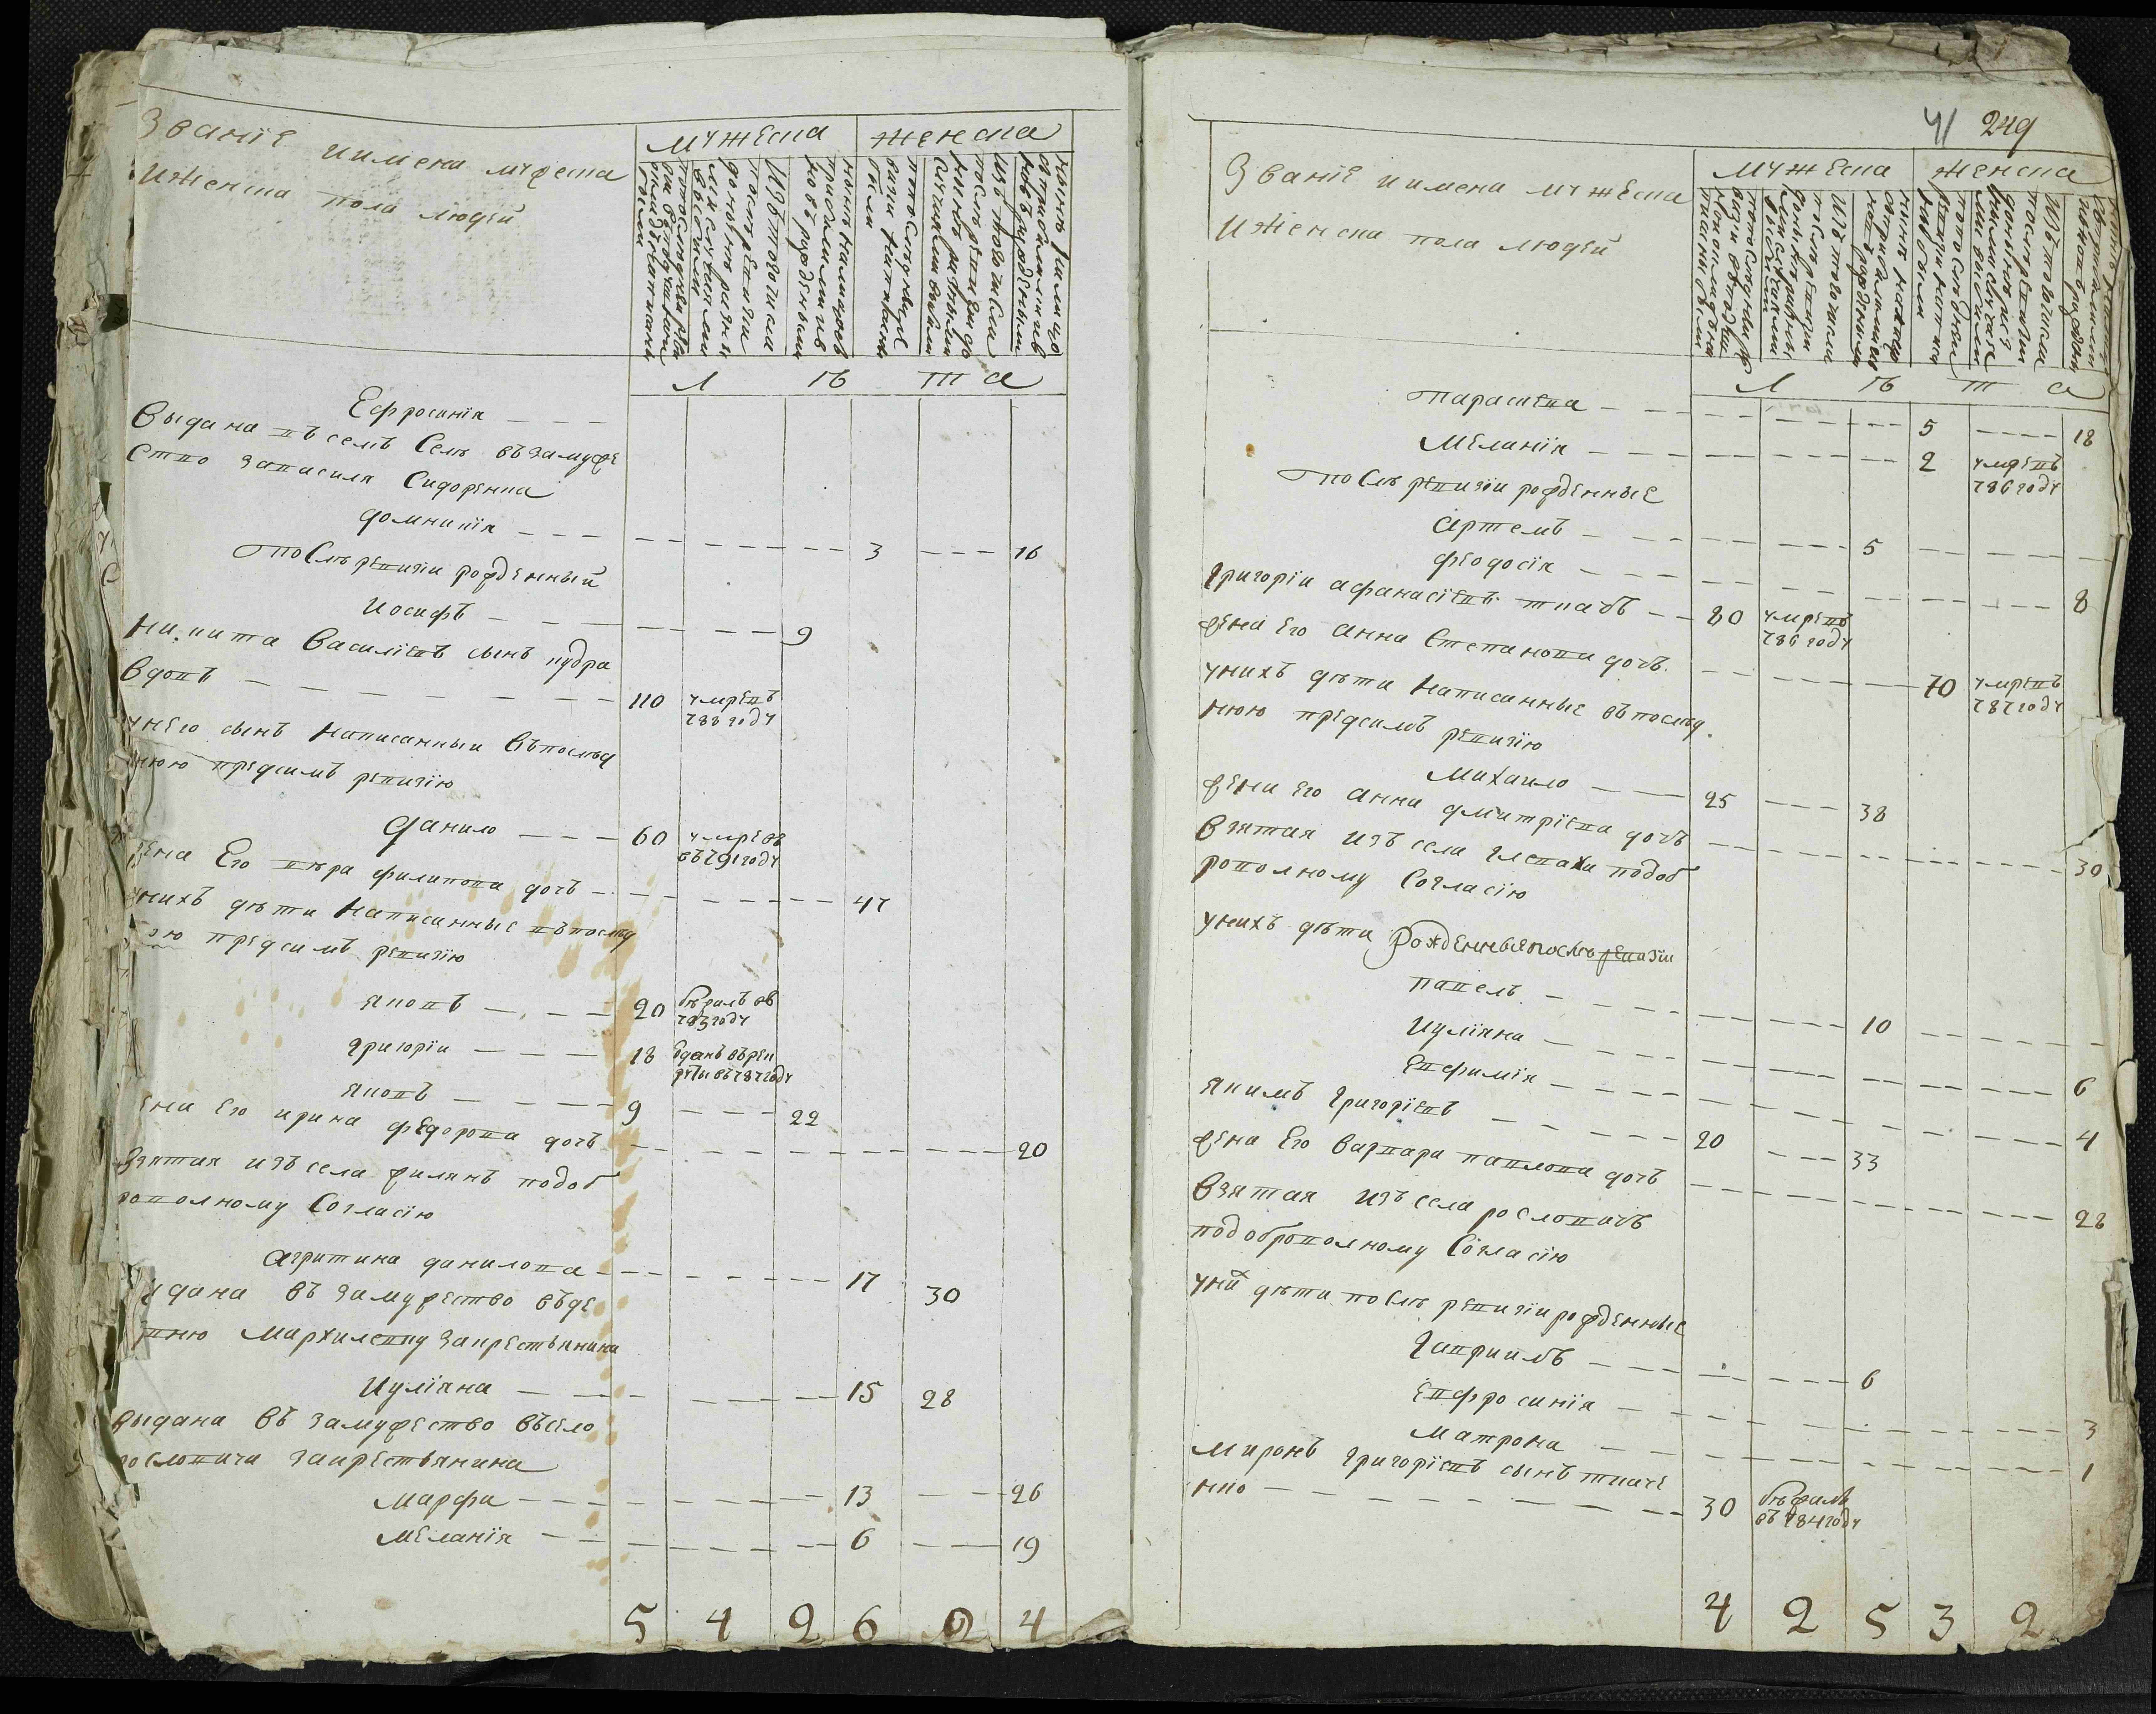 Званіе иимена мужеска
Иженска пола людей
мужеска
женска
Л ѣ т а
Ефросинія
Выдана въсемъ Селѣ възамуже
ство запасиля Сидоренка
домникія 3 16
послѣ ревизіи рожденный
Иосифъ 9
Никита Василіевъ сынъ кудра
вдовъ 110 умревъ
788 году
унего сынъ написанный въпослед
нюю предсимъ ревизію
Данило 60 умревъ
въ791году
жена Его вѣра филипова дочь 47
унихъ дѣти написанные въпослед
нюю предсимъ ревизію
яковъ 20 бѣжалъ въ
783году
григоріи 18 вданъ врек
руты въ787году
яковъ 9 22
жена Его ирина федорова дочь 20
Взятая изъ села жилянъ подоб
ровольному Согласію
Агрипина данилова 17 30
выдана въ замужество въде
ревню Мархилевку закрестьянина
Иуліяна 15 28
выдана въ замужество въсело
рословичи закрестьянина
Марфа 13 26
Меланія 6 19
5 4 2 6 2 4
41 249
Званіе иимена мужеска
Иженска пола людей
мужеска
женска
Л ѣ т а
параскева 5 18
Меланія 2 умревъ
786году
послѣ ревизіи рожденные
Артемъ 5
феодосія 8
григоріи афанасіевъ ткачь 80 умревъ
786 году
жена Его анна Степанова дочь 70 умревъ
787году
унихъ дѣти написанные въпослед
нюю предсимъ ревизію
Михаило 25 38
жена Его анна дмитріева дочь 30
Взятая изъ села глевахи подоб
ровольному Согласію
унихъ дѣти рожденныепослѣ ревизіи
павелъ 10
Иуліяна 6
Евфимія 4
якимъ григоріевъ 20 33
жена Его варвара павлова дочь 28
Взятая изъ села рословичь
подобровольному Согласію
унихъ дѣти послѣ ревизіи рожденные
гавриилъ 6
Евфросинія 3
Матрона 1
Миронъ григоріевъ сынъ ткаче
нко 30 бѣжалъ
въ784году
4 2 5 3 2